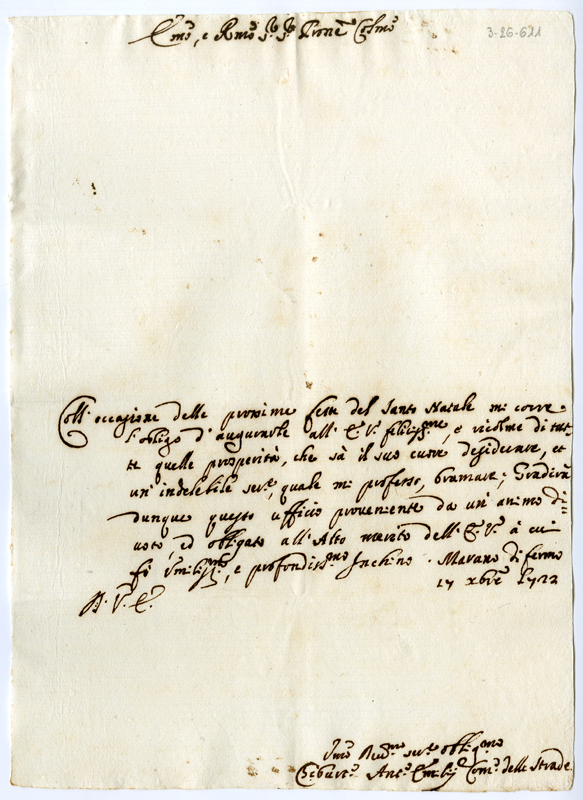 3-26-621
Em̃o, e Rm̃o Sig.r Sig.r Prone Col̃mo
Coll' occasione delle prossime feste del Santo Natale mi corre
l'obligo d'augurarle all' E. V. feliciss.me, e ricolme di tut-
te quelle prosperità, che sà il suo cuore desiderare, et
un' indelebile ser.e, quale mi professo, bramare; Gradirà
dunque questo ufficio proveniente da un' animo di=
uoto, ed obligato all' Alto merito dell' E. V. à cui
fò Vmiliss.mo, e profondiss.mo Inchino. Marano di fermo
17 xbre 1722
D. V. E.
Vmo Deu.mo ser.e obblig.mo
Ant.o Emilij Com.o delle Strade